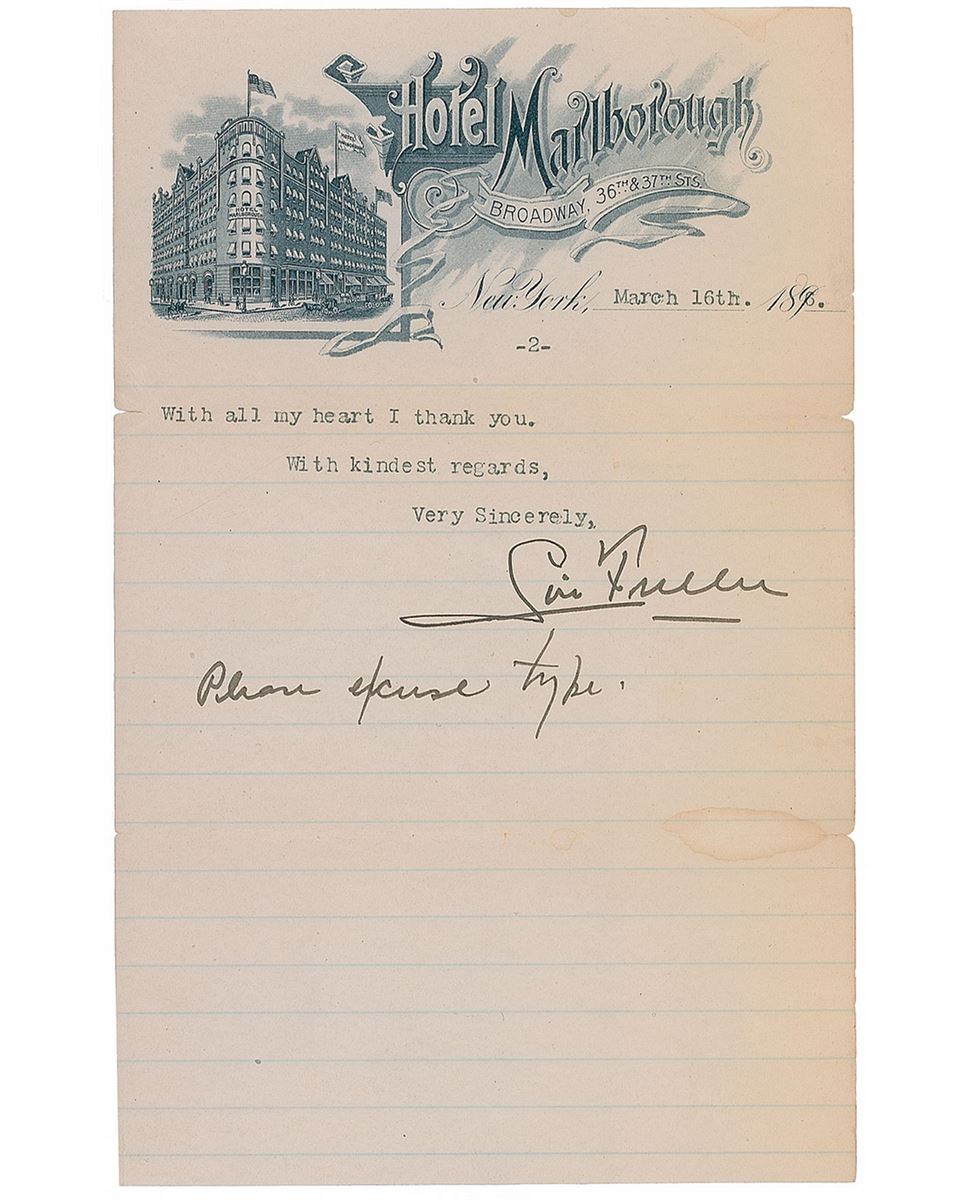 Hotel Marlborough
BROADWAY, 36TH & 37TH STS.
New York, March 16th. 1896.
-2-
With all my heart I thank you.
With kindest regards,
Very Sincerely,
Loïe Fuller
Please excuse type.